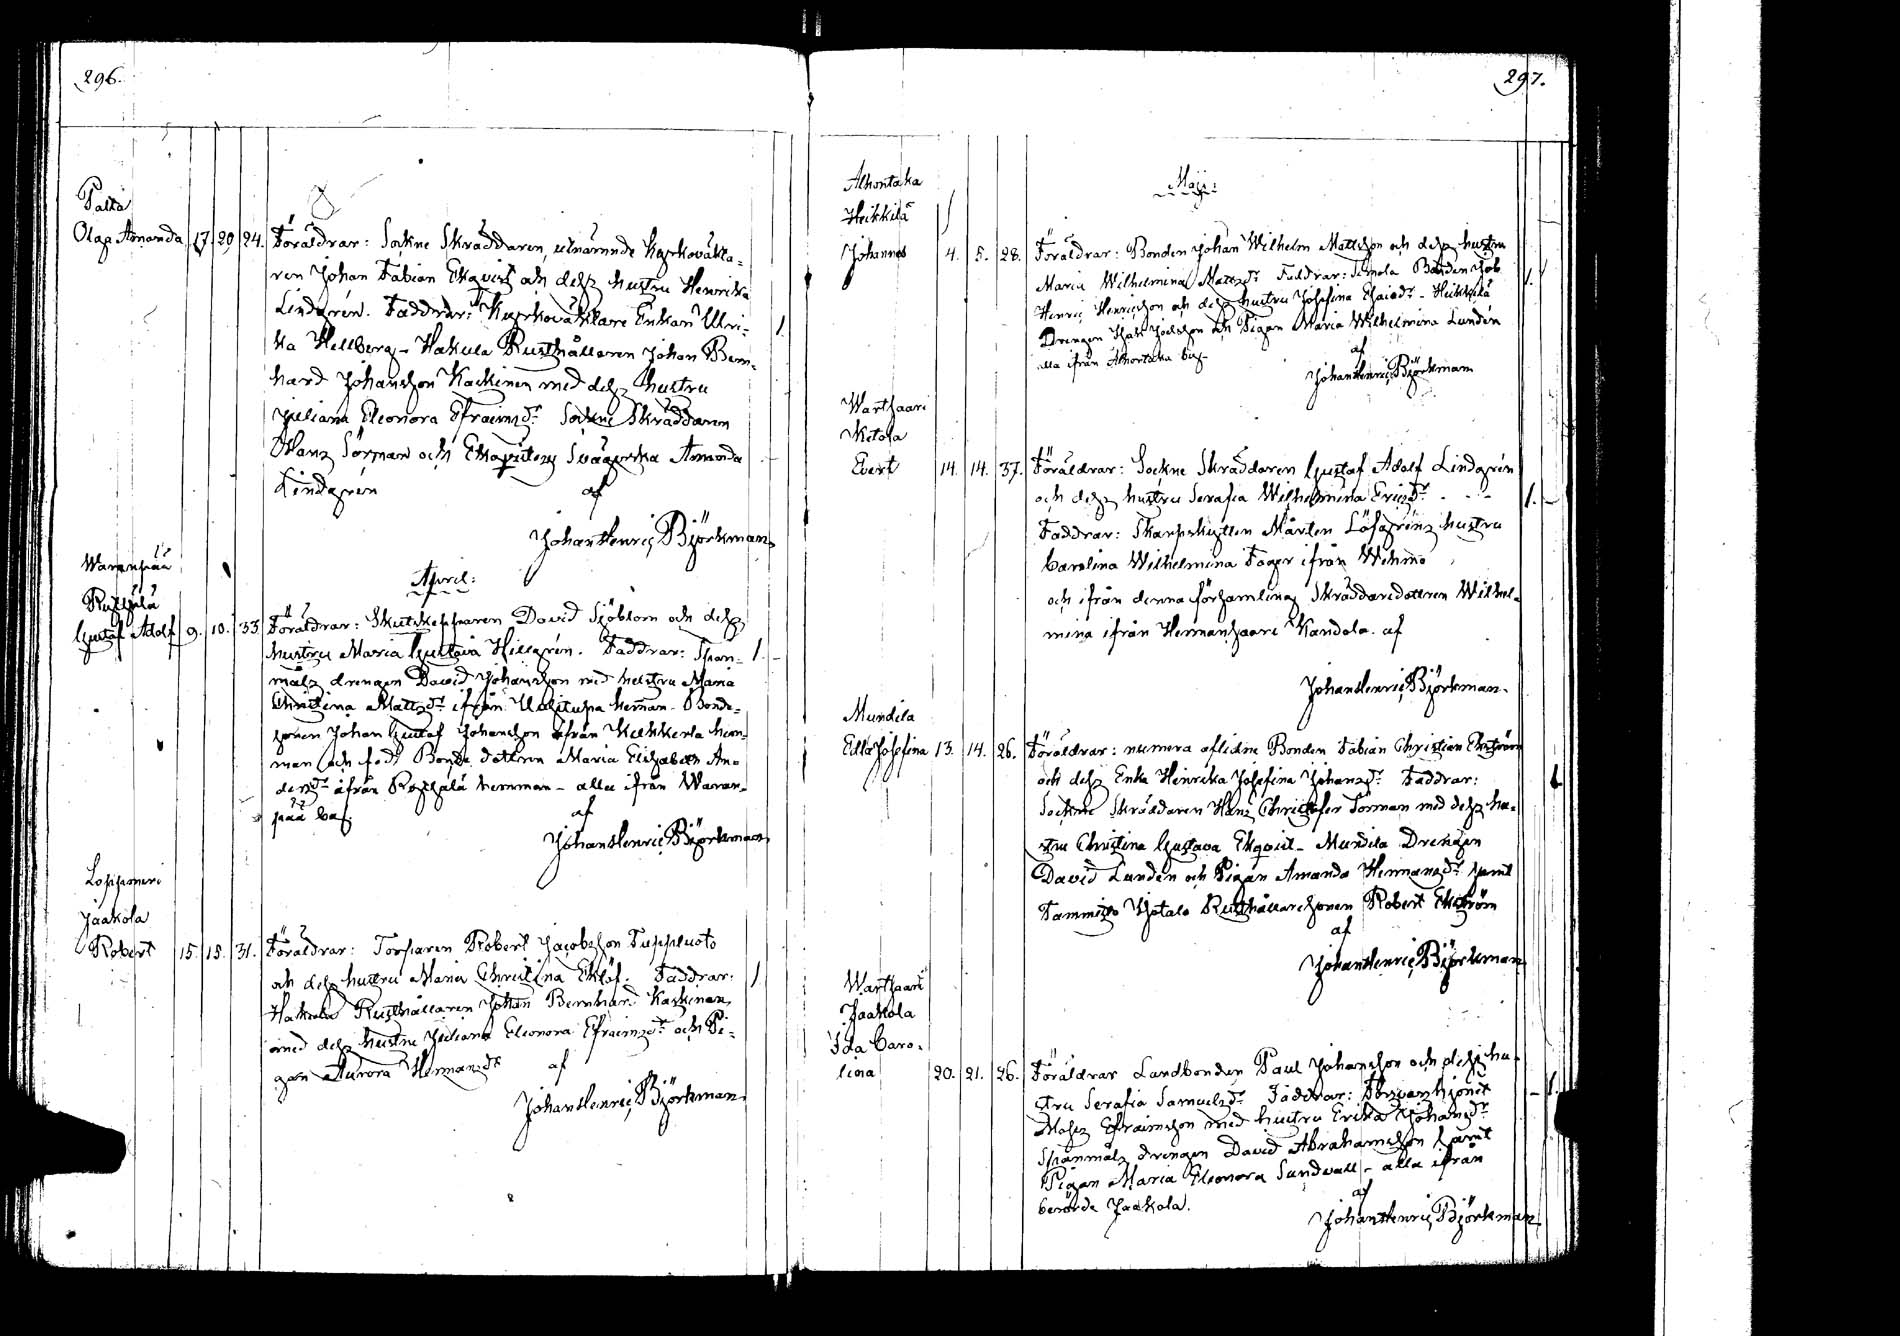 296.
Palta
Olga Amanda 17. 20. 24. Föräldrar: Sokne Skräddaren, utnämnde Kyrkovakta-
ren Johan Fabian Ekqvist och dess hustru Henrika
Lindgrén. Faddrar: Kyrkováktare Enkan Ulri-
ka Hellberg - Hakula Rusthållaren Johan Bern-
hard Johansson Kaskinen med dess hustru
Juliana Eleonora Efraimsdr. Sokne Skräddaren
Hans Sörman och Ekqvistens Svägerska Amanda
Lindgren
af
Johan Henric Björkman
April:
Waranpää
Russjälä
Gustaf Adolf 9. 10. 33 Föräldrar: Skutskepparen David Sjöblom och dess
hustru Maria Gustava Hillgrén. Faddrar: Span- 1.
måls drengen David Johansson med hustru Maria
Christina Mattsdr ifrån Uusitupa heman - Bonde-
sonen Johan Gustaf Johansson ifrån hem-
man och Bonde dottren Maria Elisabeth An-
dersdr ifrån hemman - alla ifrån Waran-
pää by.
af
Johan Henric Björkman
Loppimeri
Jaakola
Robert 15. 15. 31. Föräldrar: Torparen Robert Jacobsson Tuppluoto
och dess hustru Maria Christina Eklöf. Faddrar: 1
Hakula Rusthållaren Johan Bernhard Kaskinen
med dess hustru Juliana Eleonora Efraimsdr och Pi-
gan Aurora Hermansdr
af
Johan Henric Björkman
297.
Maji:
Alhontaka
Heikkilä
Johannes 4. 5. 28. Föräldrar: Bonden Johan Wilhelm Mattsson och dess hustru
Maria Wilhelmina Matsdr Faddrar: Bonden Job 1.
Henric Henricsson och dess hustru Josefina Esaiedr - Heikkilä
Drengen Isak Joelsson och Pigan Maria Wilhelmina Lundén
alla ifrån Alhontaka by.
af
Johan Henric Björkman
Wartsaari
Ketola
Evert 14. 14. 37. Föräldrar: Sockne Skräddaren Gustaf Adolf Lindgrén
och dess hustru Serafia Wilhelmina Ericsdr. 1.
Faddrar: Skarpskytten Mårten Löfgréns hustru
Carolina Wilhelmina Fager ifrån Wehmo
och ifrån denna församling Skräddaredottren Wilhel-
mina ifrån Hermansaari Kandola. af
Johan Henric Björkman.
Mundila
Edla Josefina 13. 14. 26. Föräldrar: numera aflidne Bonden Fabian Christian Ekström
och dess Enka Henrika Josefina Johansdr. Faddrar: 1
Sockne Skräddaren Hans Christofer Sörman med dess hu-
stru Christina Gustava Ekqvist - Mundila Drengen
David Lunden och Pigan Amanda Hermansdr samt
Tammisto Ylötalo Rusthållaresonen Robert Ekström
af
Johan Henric Björkman
Wartsaari
Jaakola
Ida Caro-
lina 20. 21. 26. Föräldrar Landbonden Paul Johansson och dess hu-
stru Serafia Samuelsdr. Faddrar: 1.
Moses Efraimsson med hustru Erika Johansdr
Spanmåls drengen David Abrahamsson samt
Pigan Maria Eleonora Sundvall - alla ifrån
berörde Jaakola.
af
Johan Henric Björkman